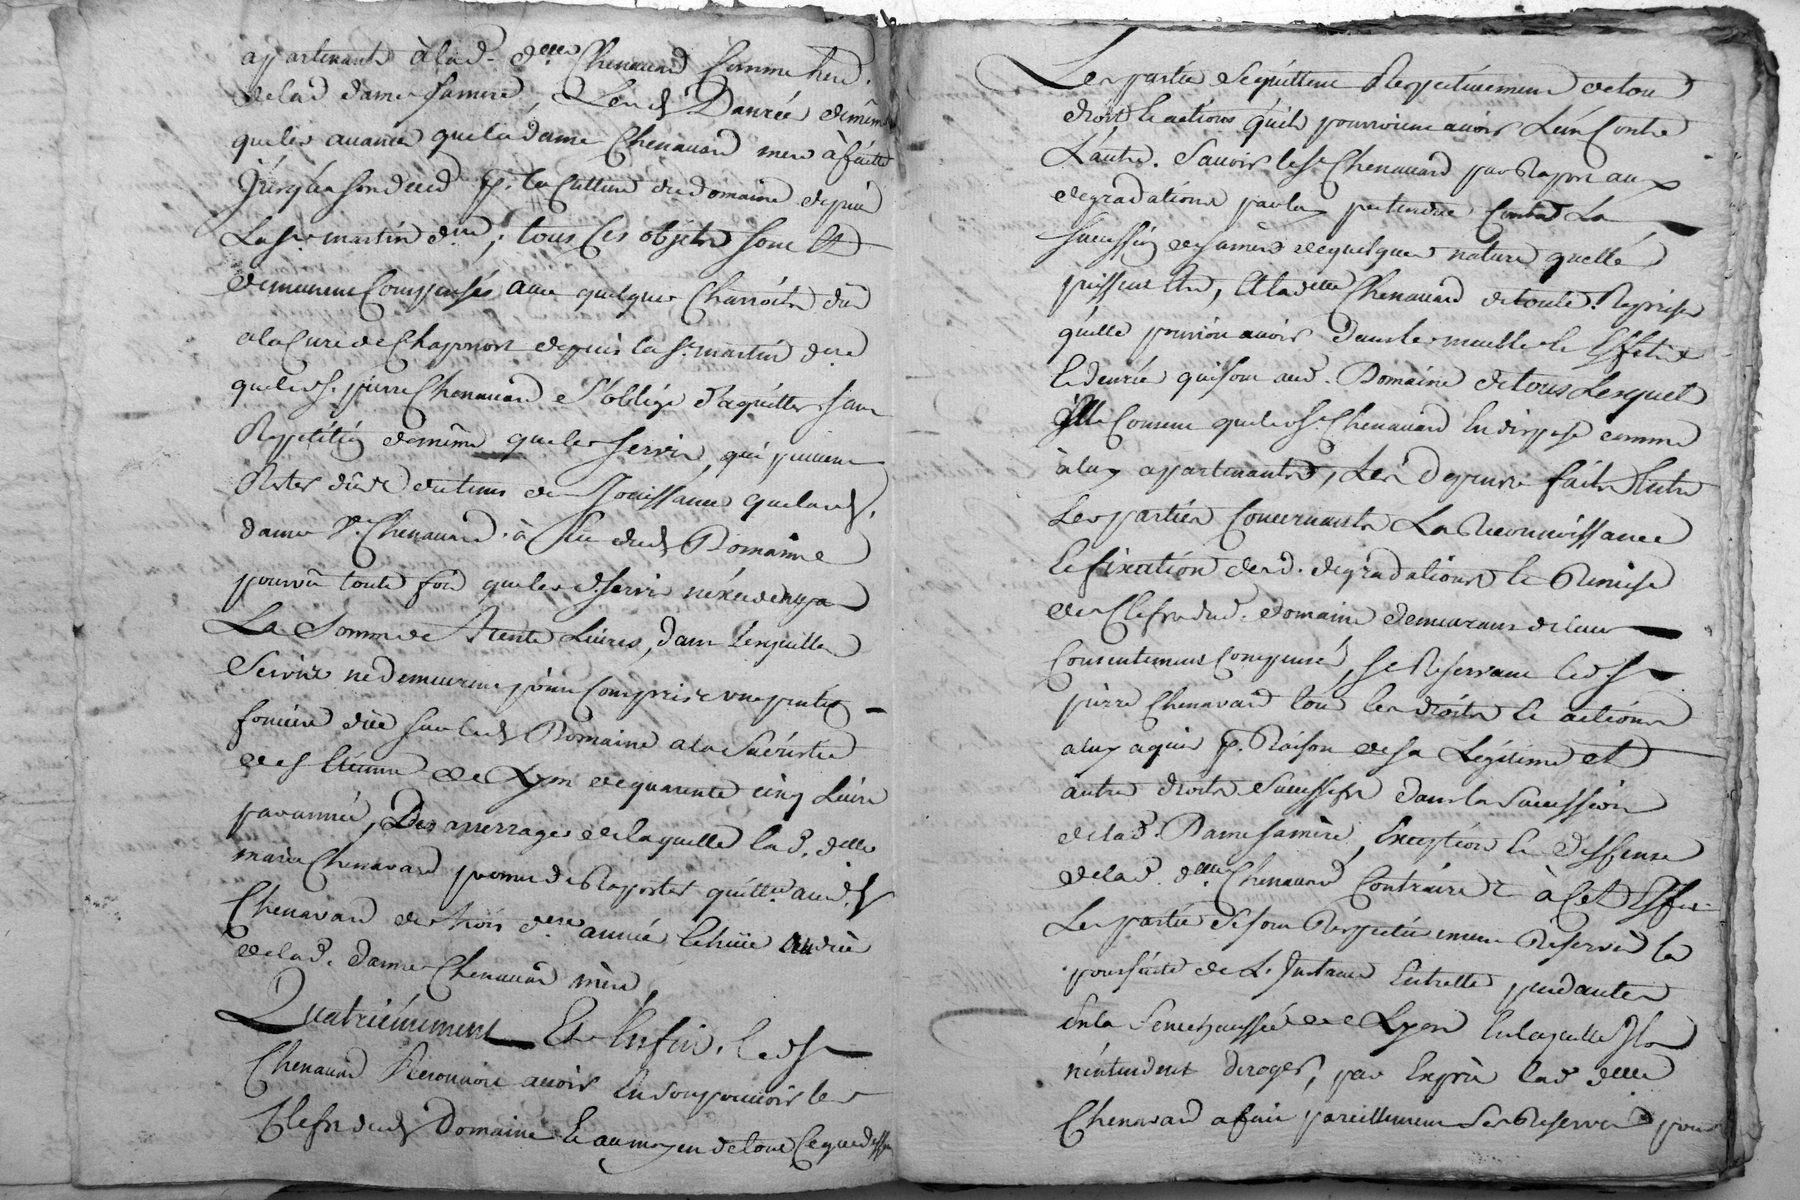 appartenants à lad. delle Chenavard comme herit.
de lad dame sa mere, Lesd Danrées de même
que les avances que la dame Chenavard mere à faite
jusqu'a son deced p. la Culture du domaine depuis
La st martin dre, tous ces objets sont Et
demeurent Compensés avec quelques Charrois dûs
a la Cure de Chaponost depuis la st. martin dre
que led sr. pierre Chenavard s'oblige d'aquitter sans
Repetition de même que les servis qui peuvent
Rester dûs du tems de Jouissance que lad.
dame Ve. Chenavard à Eue dud Domaine
pourvû toute fois que lesd. servis n'éxcedent pas
La Somme de Trente Livres, dans lesquelles
Servis ne demeurent point Comprise une pention
fonciere düe sur led Domaine a la Sacristie
de st Etienne de Lyon de quarente cinq Livres
par année, Des arrerages de laquelle lad. delle
marie Chenavard promet de Raporter quittce aud. sr
Chenavard de trois dres année Echüe au decè
de lad. dame Chenavard mère
Quatrièmement Et Enfin, led sr
Chenavard Reconnoit avoir En son pouvoir les
Clefs dud Domaine Et au moyen de tout Ce que dessus
Les parties se quittent Respectivement de tous
droits Et actions qu'ils pourroient avoir L'un Contre
L'autre. Savoir le sr Chenavard par Raport aux
degradations par luy pretendues Contre La
succession de sa mère de quelque nature quelles
puissent Etre, Et lad delle Chenavard de toute Reprises
qu'elle pourroit avoir dans les meubles Et Effets
Et denrées qui sont aud. Domaine de tous Lesquels
Elle Consent que led sr Chenavard En dispose comme
à luy appartenants, Les depenses faites Entre
Les parties Concernants La Reconnoissance
Et fixation desd. degradations Et Remise
des Clefs dud. domaine demeurans de leur
Consentement Compensés, se Réservant led sr
pierre Chenavard tous les droits Et actions
a luy aquis p. Raison de sa Légitime et
autre droits Successifs dans la Succession
de lad. Dame sa mère, Exceptions Et deffenses
de lad. delle Chenavard Contraires à Cet Effet
Les parties se sont Respectivement Réservés la
poursuite de L'Instance Entrelles pendantes
En la Senechaussée de Lyon En laquelle Ils
n'entendent deroger, par Exprès lad delle
Chenavard a fait pareillement Ses Reserves pour